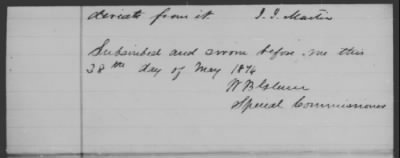 deviate from it J. J. Martin
Subscribed and sworn before me this
28th day of May 1874
W B
Special Commissioner